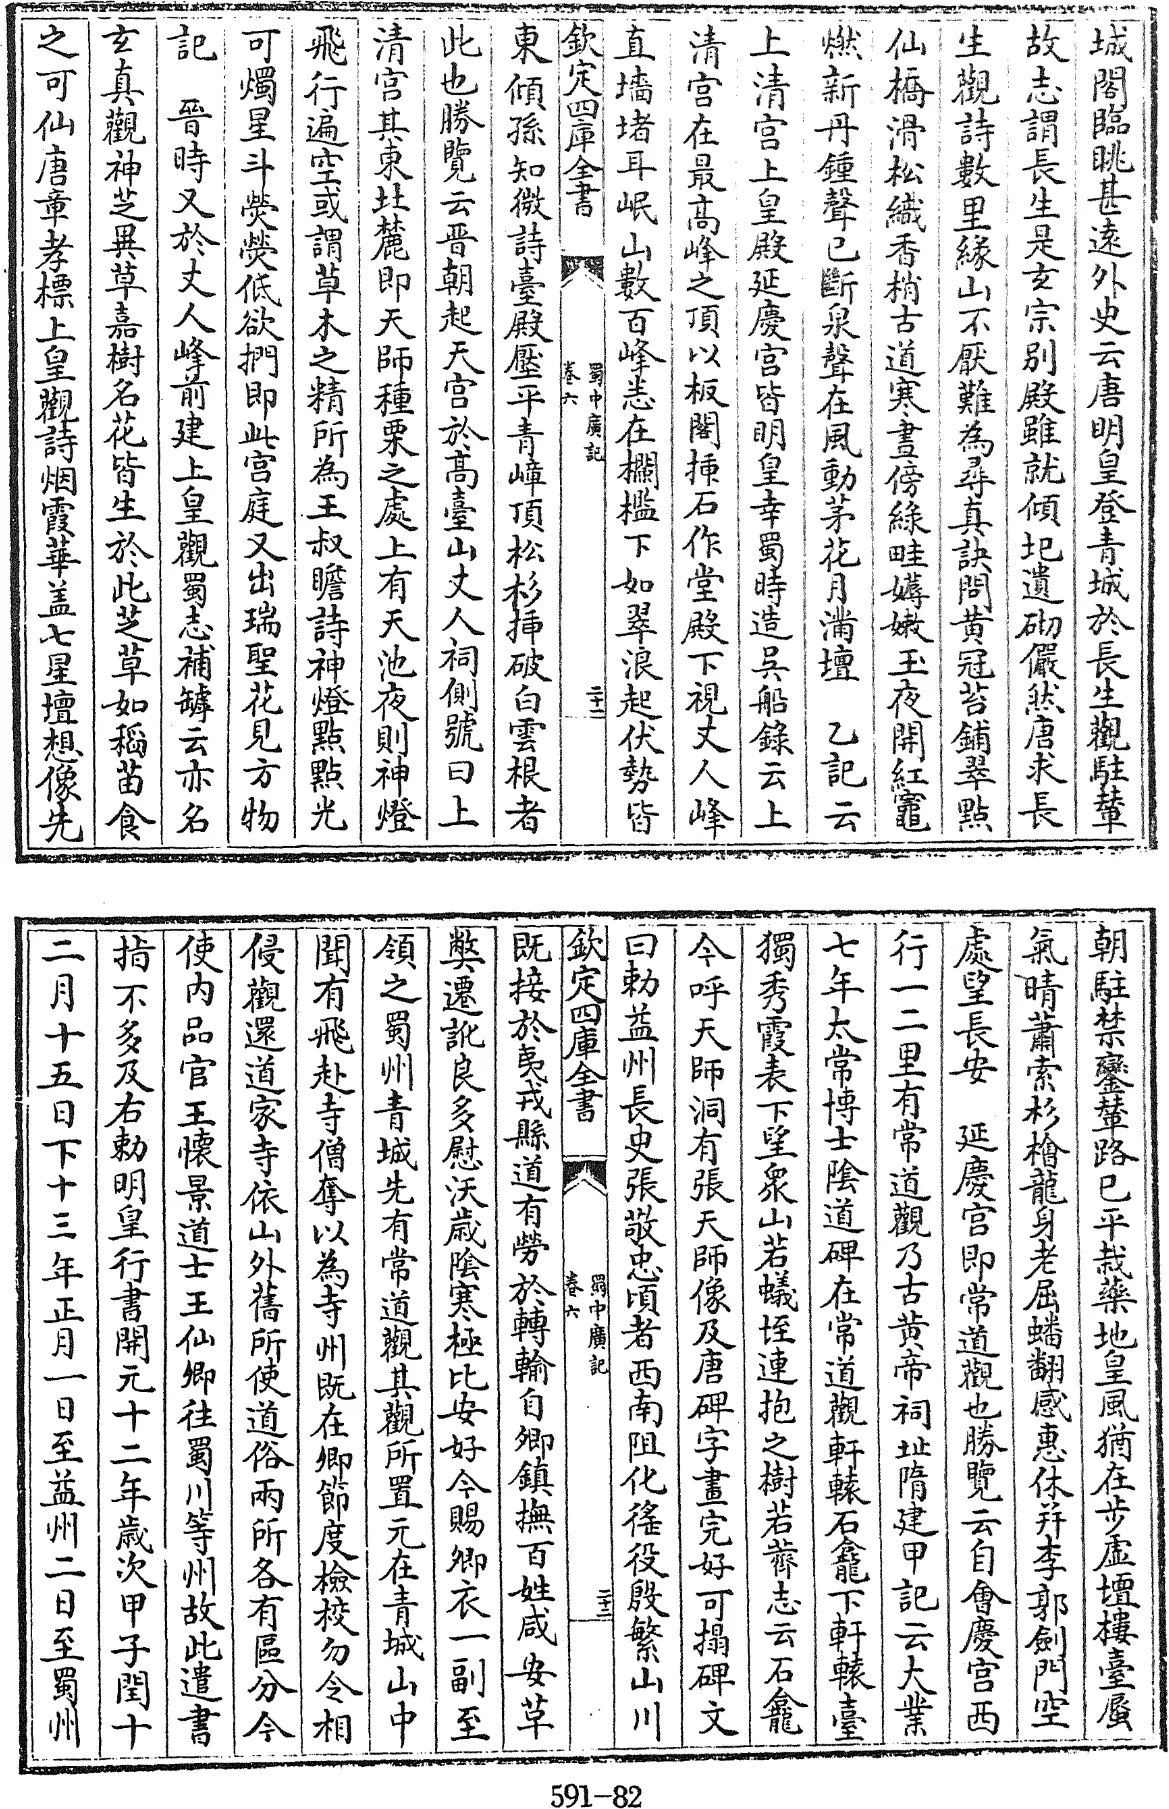 城閣臨眺甚遠外史云唐明皇登青城於長生觀駐輦
故志謂長生是玄宗別殿雖就傾圮遺砌儼然唐求長
生觀詩數里緣山不厭難為尋真訣問黃冠苔鋪翠點
仙橋滑松織香梢古道寒晝傍綠畦薅嫩玉夜開紅竈
燃新丹鍾聲已斷泉聲在風動茅花月滿壇　乙記云
上清宫上皇殿延慶宫皆明皇幸蜀時造吳船錄云上
清宫在最高峰之頂以板閣插石作堂殿下視丈人峰
直墻堵耳岷山數百峰悉在欄檻下如翠浪起伏勢皆
欽定四庫全書
蜀中廣記
卷六
二十二
東傾孫知微詩臺殿壓平青嶂頂松杉揷破白雲根者
此也勝覽云晉朝起天宫於高臺山丈人祠側號曰上
清宫其東北麓即天師種栗之處上有天池夜則神燈
飛行遍空或謂草木之精所為王叔瞻詩神燈點點光
可燭星斗熒熒低欲捫即此宫庭又出瑞聖花見方物
記　晉時又於丈人峰前建上皇觀蜀志補罅云亦名
玄真觀神芝異草嘉樹名花皆生於此芝草如稻苗食
之可仙唐章孝標上皇觀詩烟霞華盖七星壇想像先
朝駐禁鑾輦路已平栽藥地皇風猶在步虛壇樓臺蜃
氣晴蕭索杉檜龍身老屈蟠翻感惠休幷李郭劍門空
處望長安　延慶宫即常道觀也勝覽云自會慶宫西
行一二里有常道觀乃古黄帝祠址隋建甲記云大業
七年太常博士陰道碑在常道觀軒轅石龕下軒轅臺
獨秀霞表下望衆山若蟻垤連抱之樹若薺志云石龕
今呼天師洞有張天師像及唐碑字畫完好可搨碑文
曰勅益州長史張敬忠頃者西南阻化徭役殷繁山川
欽定四庫全書
蜀中廣記
卷六
二十三
既接於夷戎縣道有勞於轉輸自卿鎮撫百姓咸安草
弊遷訛良多慰沃歲陰寒極比安好今賜卿衣一副至
領之蜀州青城先有常道觀其觀所置元在青城山中
聞有飛赴寺僧奪以為寺州既在卿節度檢校勿令相
侵觀還道家寺依山外舊所使道俗兩所各有區分今
使内品官王懷景道士王仙卿往蜀川等州故此遣書
指不多及右勅明皇行書開元十二年歲次甲子閏十
二月十五日下十三年正月一日至益州二日至蜀州
591-82